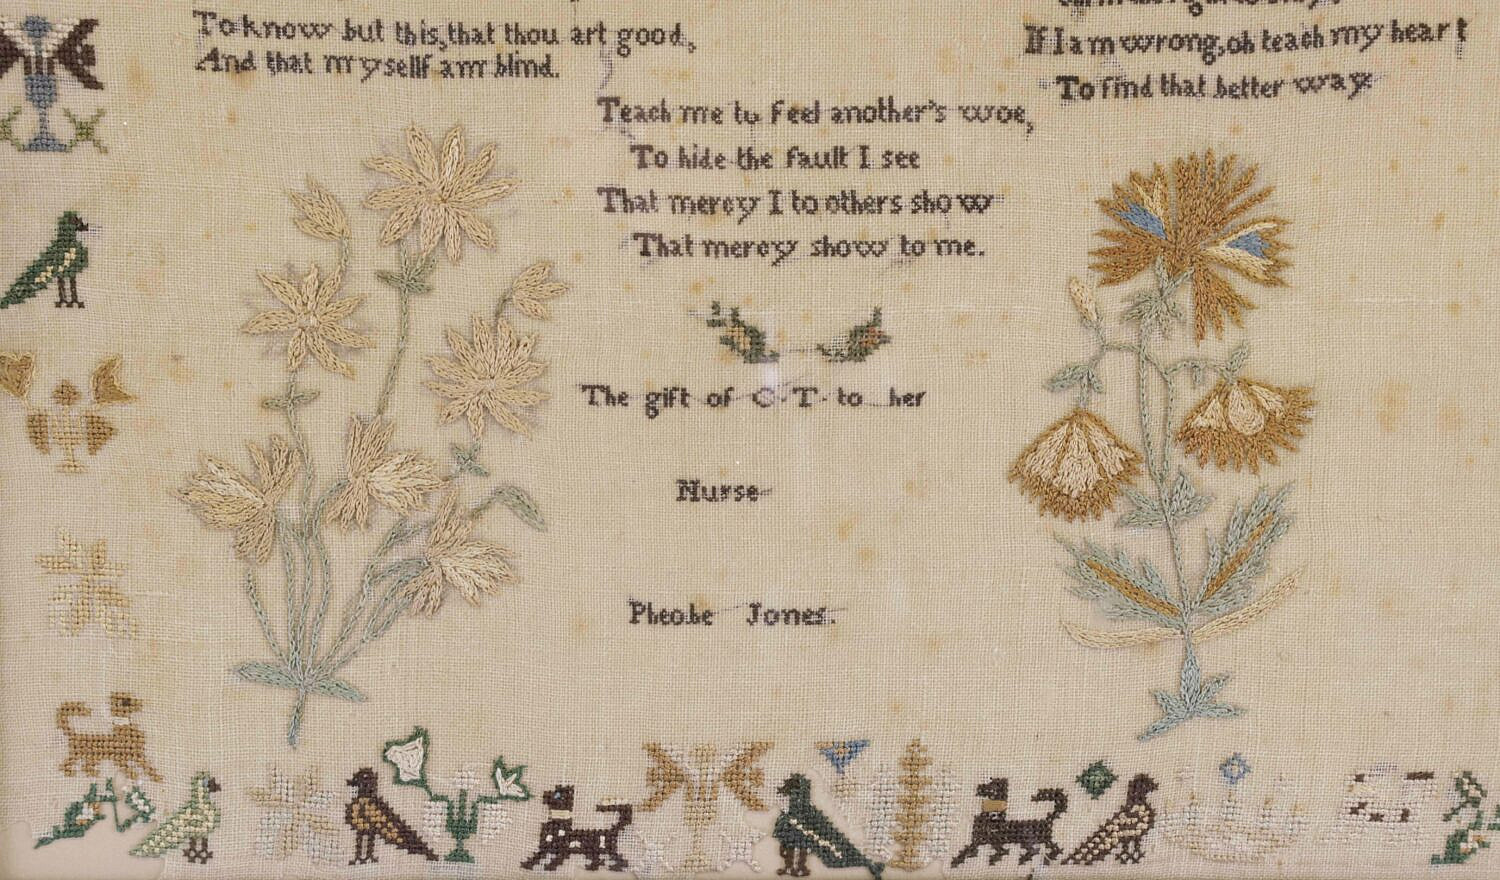 To know but this, that thou art good,
And that my sellf am blind.
If I am wrong, oh teach my heart
To find that better way
Teach me to feel another's woe,
To hide the fault I see
That mercy I to others show
That mercy show to me.
The gift of T. to her
Nurse
Pheobe Jones.